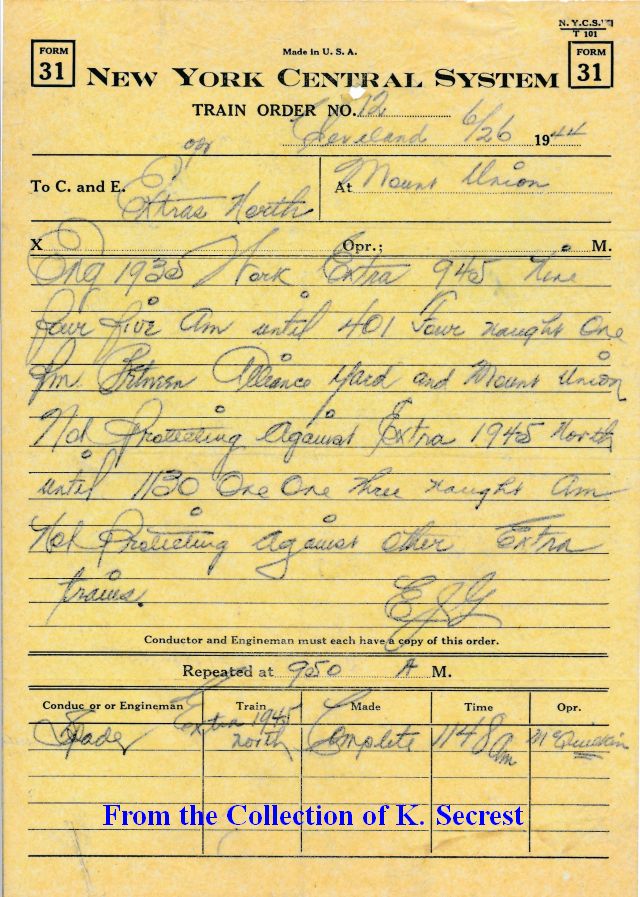 N.Y.C.S.
T 101
FORM 31
Made in U. S. A.
FORM 31
NEW YORK CENTRAL SYSTEM
TRAIN ORDER NO. 12
Cleveland 6/26 1944
opr
To C. and E. Extras North At Mount Union
X Opr.; M.
Eng 1935 Work Extra 945 Nine
four five Am until 401 Four naught One
Pm. Between Alliance Yard and Mount Union
Not Protecting Against Extra 1945 North
until 1130 One One three naught Am
Not Protecting against other Extra
trains. EJG
Conductor and Engineman must each have a copy of this order.
Repeated at 950 A M.
Conduc or or Engineman Train Made Time Opr.
Spade Extra 1945 North Complete 1148 am McQuilkin
From the Collection of K. Secrest